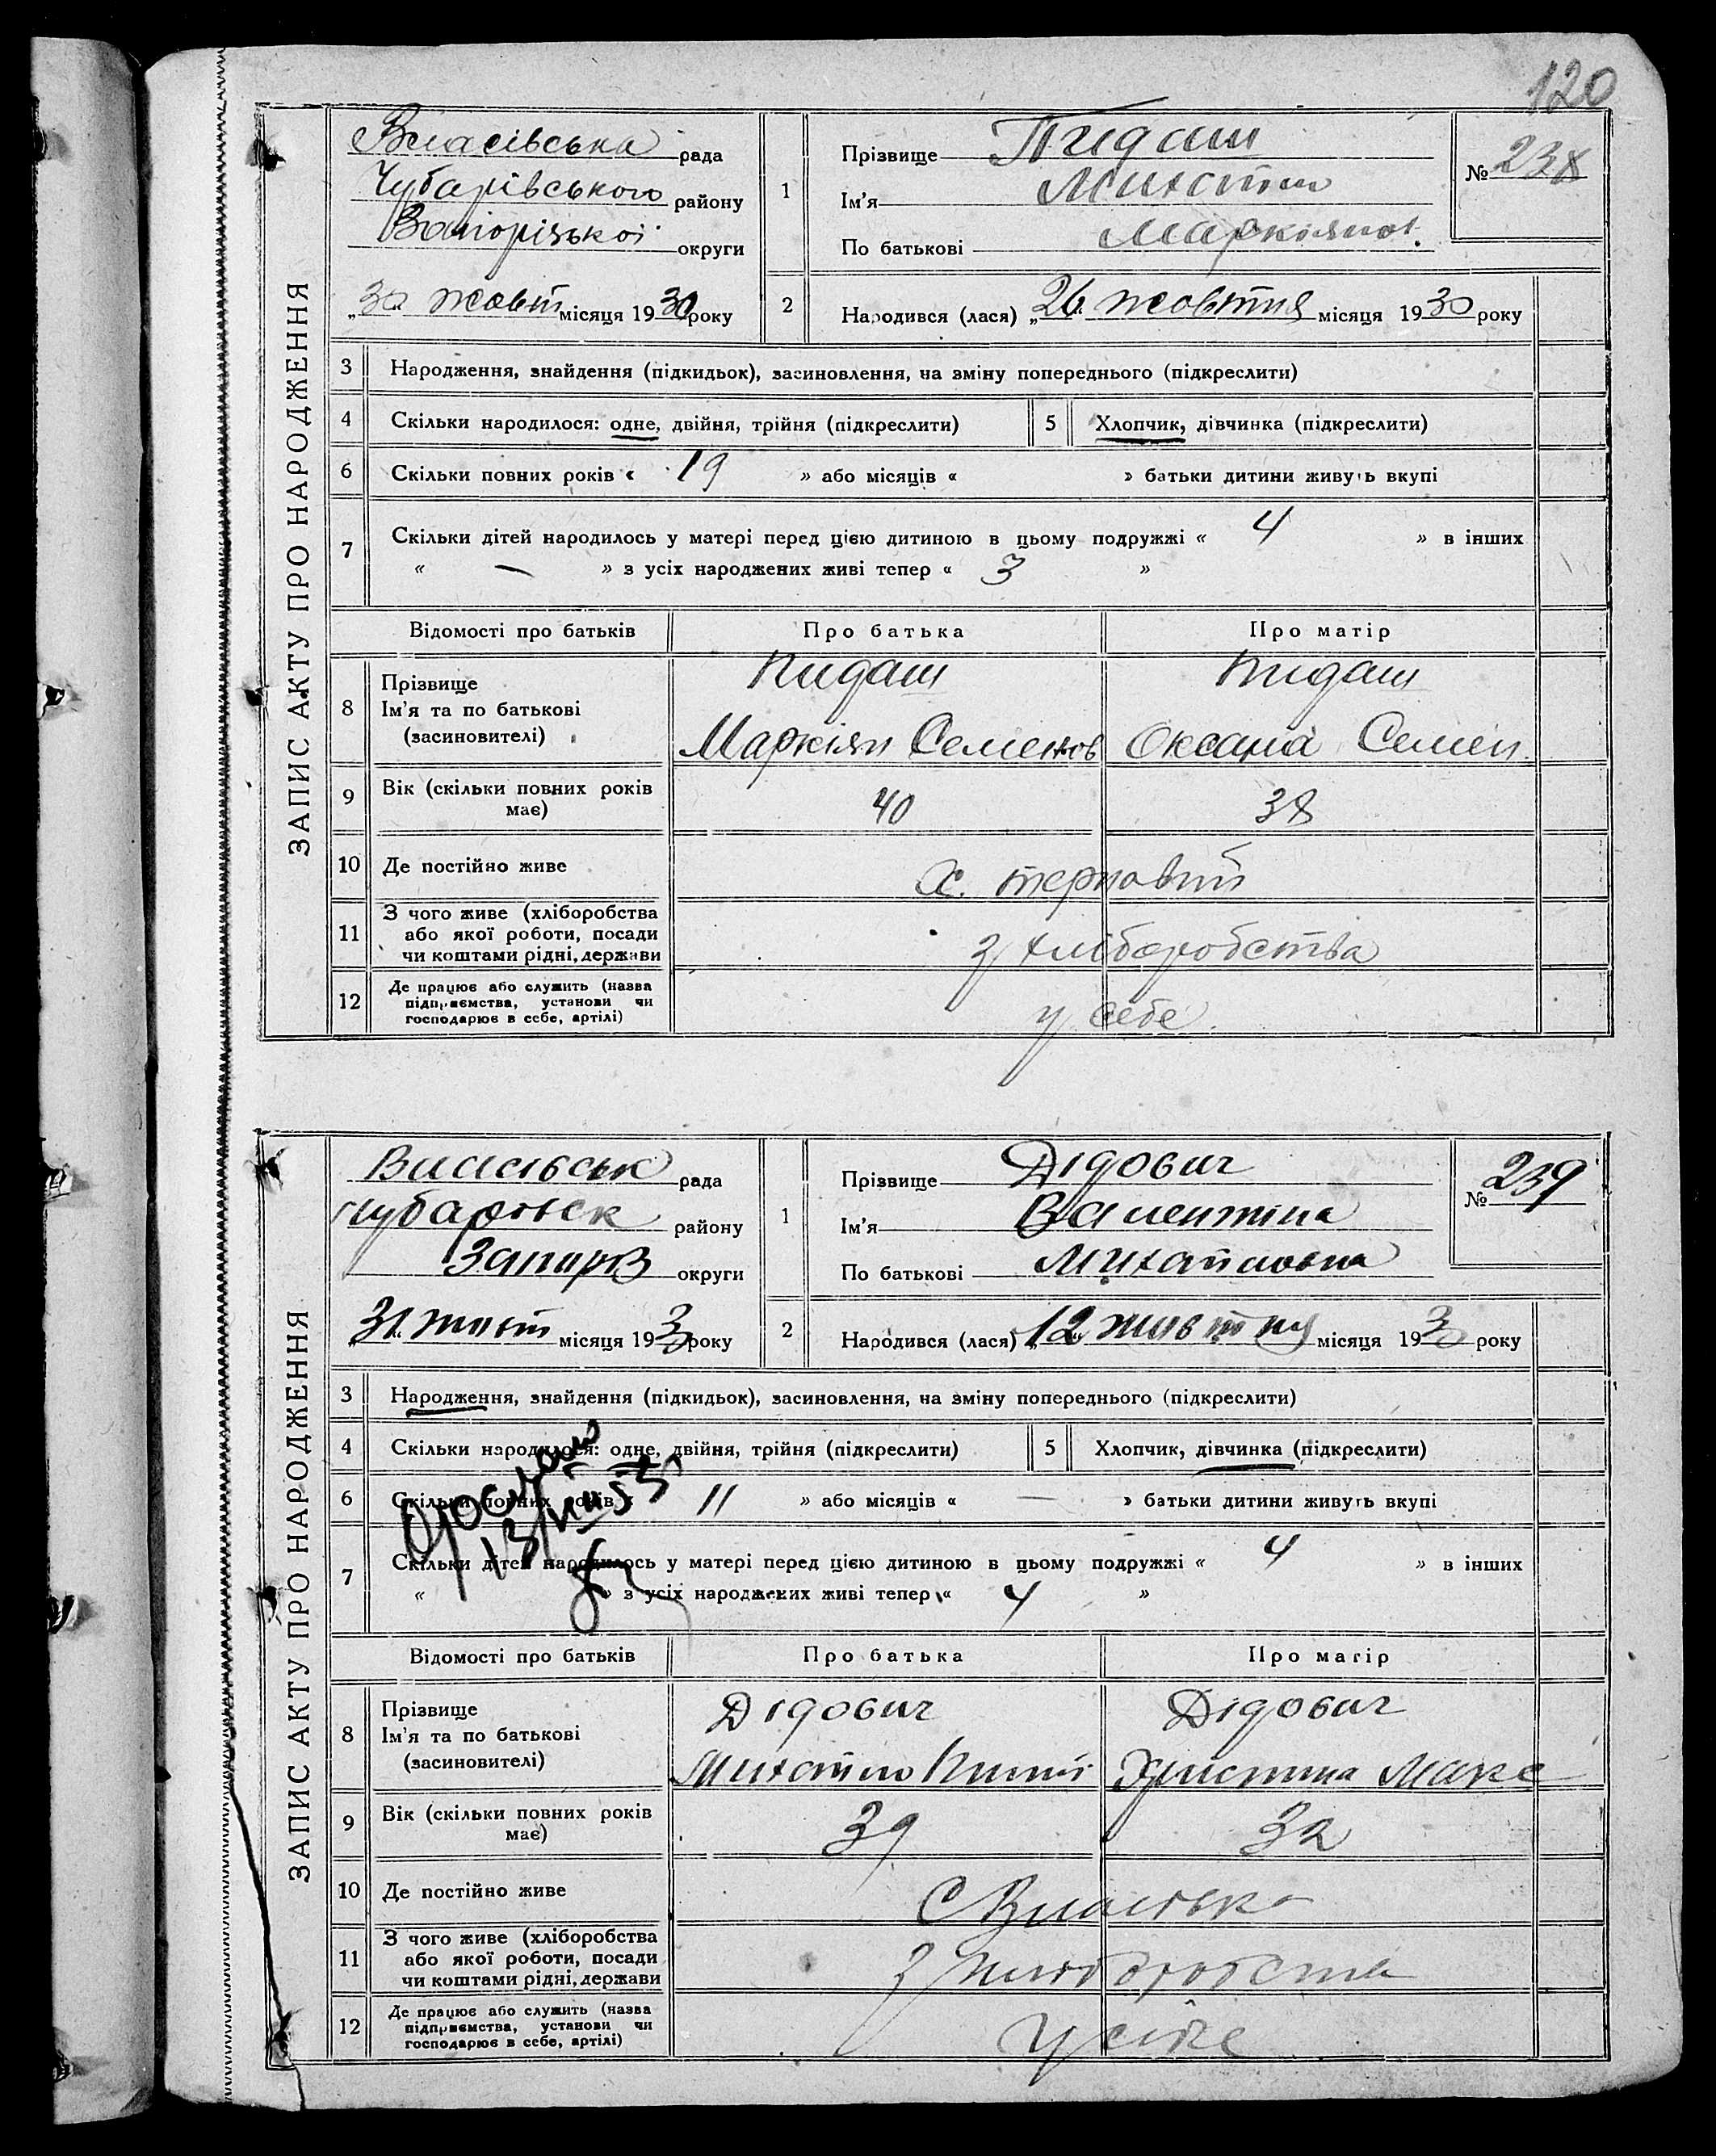 120
ЗАПИС АКТУ ПРО НАРОДЖЕННЯ
Власівська рада
Чубарівського району
Запорізької округи
„30" жовт місяця 1930 року
1 Прізвище Пидаш
Ім'я Михайло
По батькові Маркіянов.
№ 238
2 Народився (лася) „26" жовтня місяця 1930 року
3 Народження, знайдення (підкидьок), засиновлення, на зміну попереднього (підкреслити)
4 Скільки народилося: одне, двійня, трійня (підкреслити)
5 Хлопчик, дівчинка (підкреслити)
6 Скільки повних років « 19 » або місяців « » батьки дитини живуть вкупі
7 Скільки дітей народилось у матері перед цією дитиною в цьому подружжі « 4 » в інших
« — » з усіх народжених живі тепер « 3 »
Відомості про батьків Про батька Про матір
8 Прізвище Пидаш Пидаш
Ім'я та по батькові
(засиновителі) Маркіян Семенов Оксана Семен.
9 Вік (скільки повних років має) 40 38
10 Де постійно живе х. терновий
11 З чого живе (хліборобства
або якої роботи, посади
чи коштами рідні, держави
з хліборобства
12 Де працює або служить (назва
підприємства, установи чи
господарює в себе, артілі)
у себе
ЗАПИС АКТУ ПРО НАРОДЖЕННЯ
Власівськ рада
Чубаровск району
округи
„31" місяця 1930 року
1 Прізвище Дідович
Ім'я Валентина
По батькові Михайловна
№ 239
2 Народився (лася) „12" жовтня місяця 1930 року
3 Народження, знайдення (підкидьок), засиновлення, на зміну попереднього (підкреслити)
4 Скільки народилося: одне, двійня, трійня (підкреслити)
5 Хлопчик, дівчинка (підкреслити)
6 Скільки повних років « 11 » або місяців « — » батьки дитини живуть вкупі
13/VIII 53
7 Скільки дітей народилось у матері перед цією дитиною в цьому подружжі « 4 » в інших
« » з усіх народжених живі тепер « 4 »
Відомості про батьків Про батька Про матір
8 Прізвище Дідович Дідович
Ім'я та по батькові
(засиновителі) Михайло Христина Макс
9 Вік (скільки повних років має) 39 32
10 Де постійно живе С Власівка
11 З чого живе (хліборобства
або якої роботи, посади
чи коштами рідні, держави
з хліборобства
12 Де працює або служить (назва
підприємства, установи чи
господарює в себе, артілі)
у себе